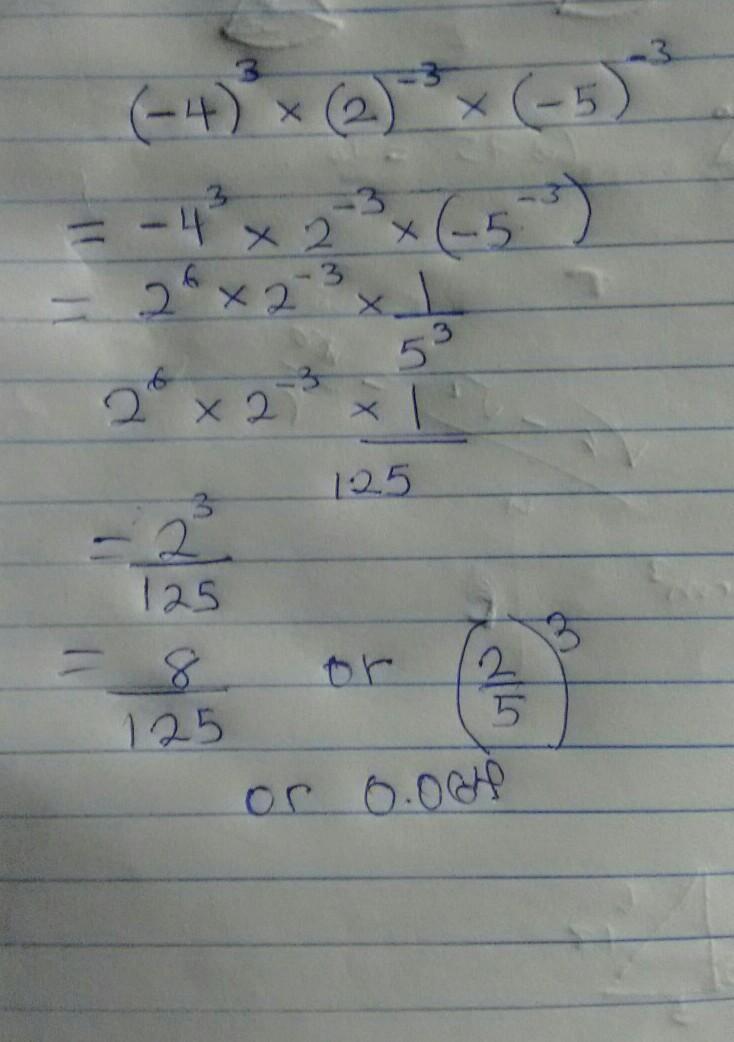 (-4)³ × (2)⁻³ × (-5)⁻³
= -4³ × 2⁻³ × (-5⁻³)
= 2⁶ × 2⁻³ × 1/5³
2⁶ × 2⁻³ × 1/125
= 2³/125
= 8/125 or (2/5)³
or 0.064